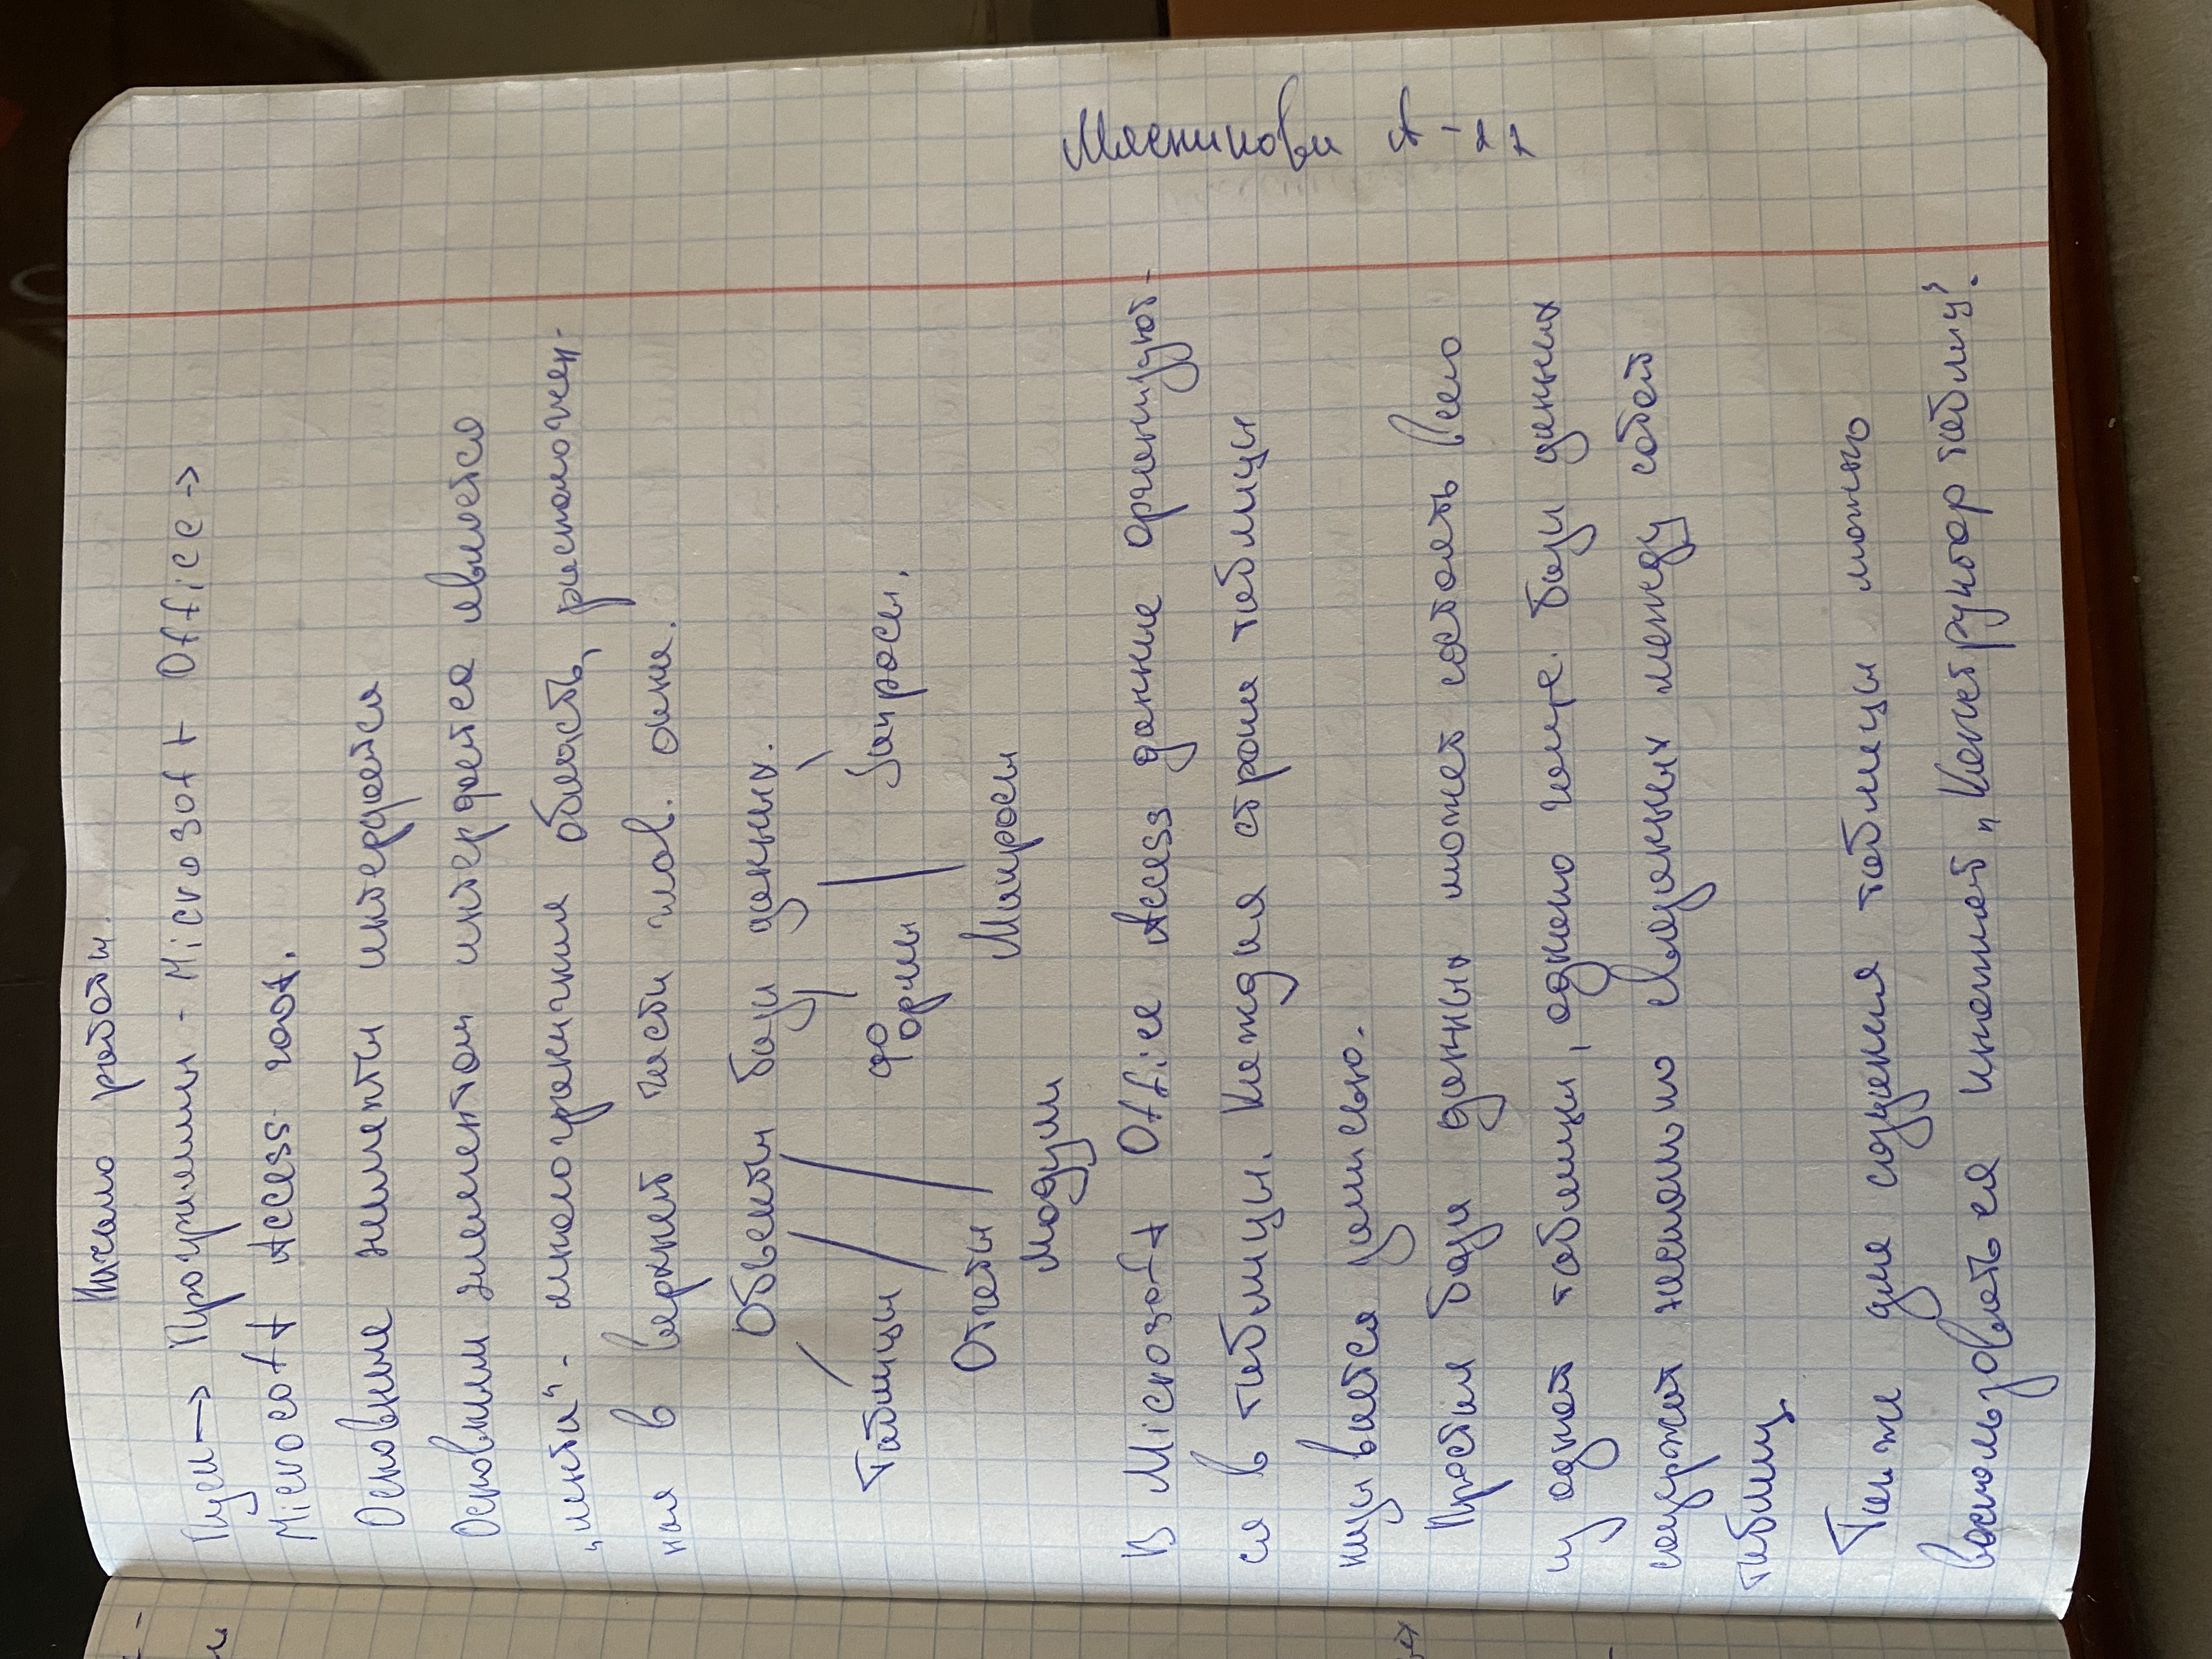 Начало работы.
Пуск → Программы - Microsoft Office →
Microsoft Access 2007.
Основные элементы интерфейса
Основным элементом интерфейса является
"лента" - многостраничная область, расположен-
ная в верхней части глав. окна.
Объекты базы данных.
Таблицы / / Формы | Запросы.
Отчеты Макросы
Модули
В Microsoft Office Access данные организуют-
ся в таблицы. Каждая строка таблицы
называется записью.
Простая база данных может состоять всего
из одной таблицы, однако чаще базы данных
содержат несколько связанных между собой
таблиц.
Также для создания таблицы можно
воспользоваться кнопкой "Конструктор таблиц".
Мясникова А-11